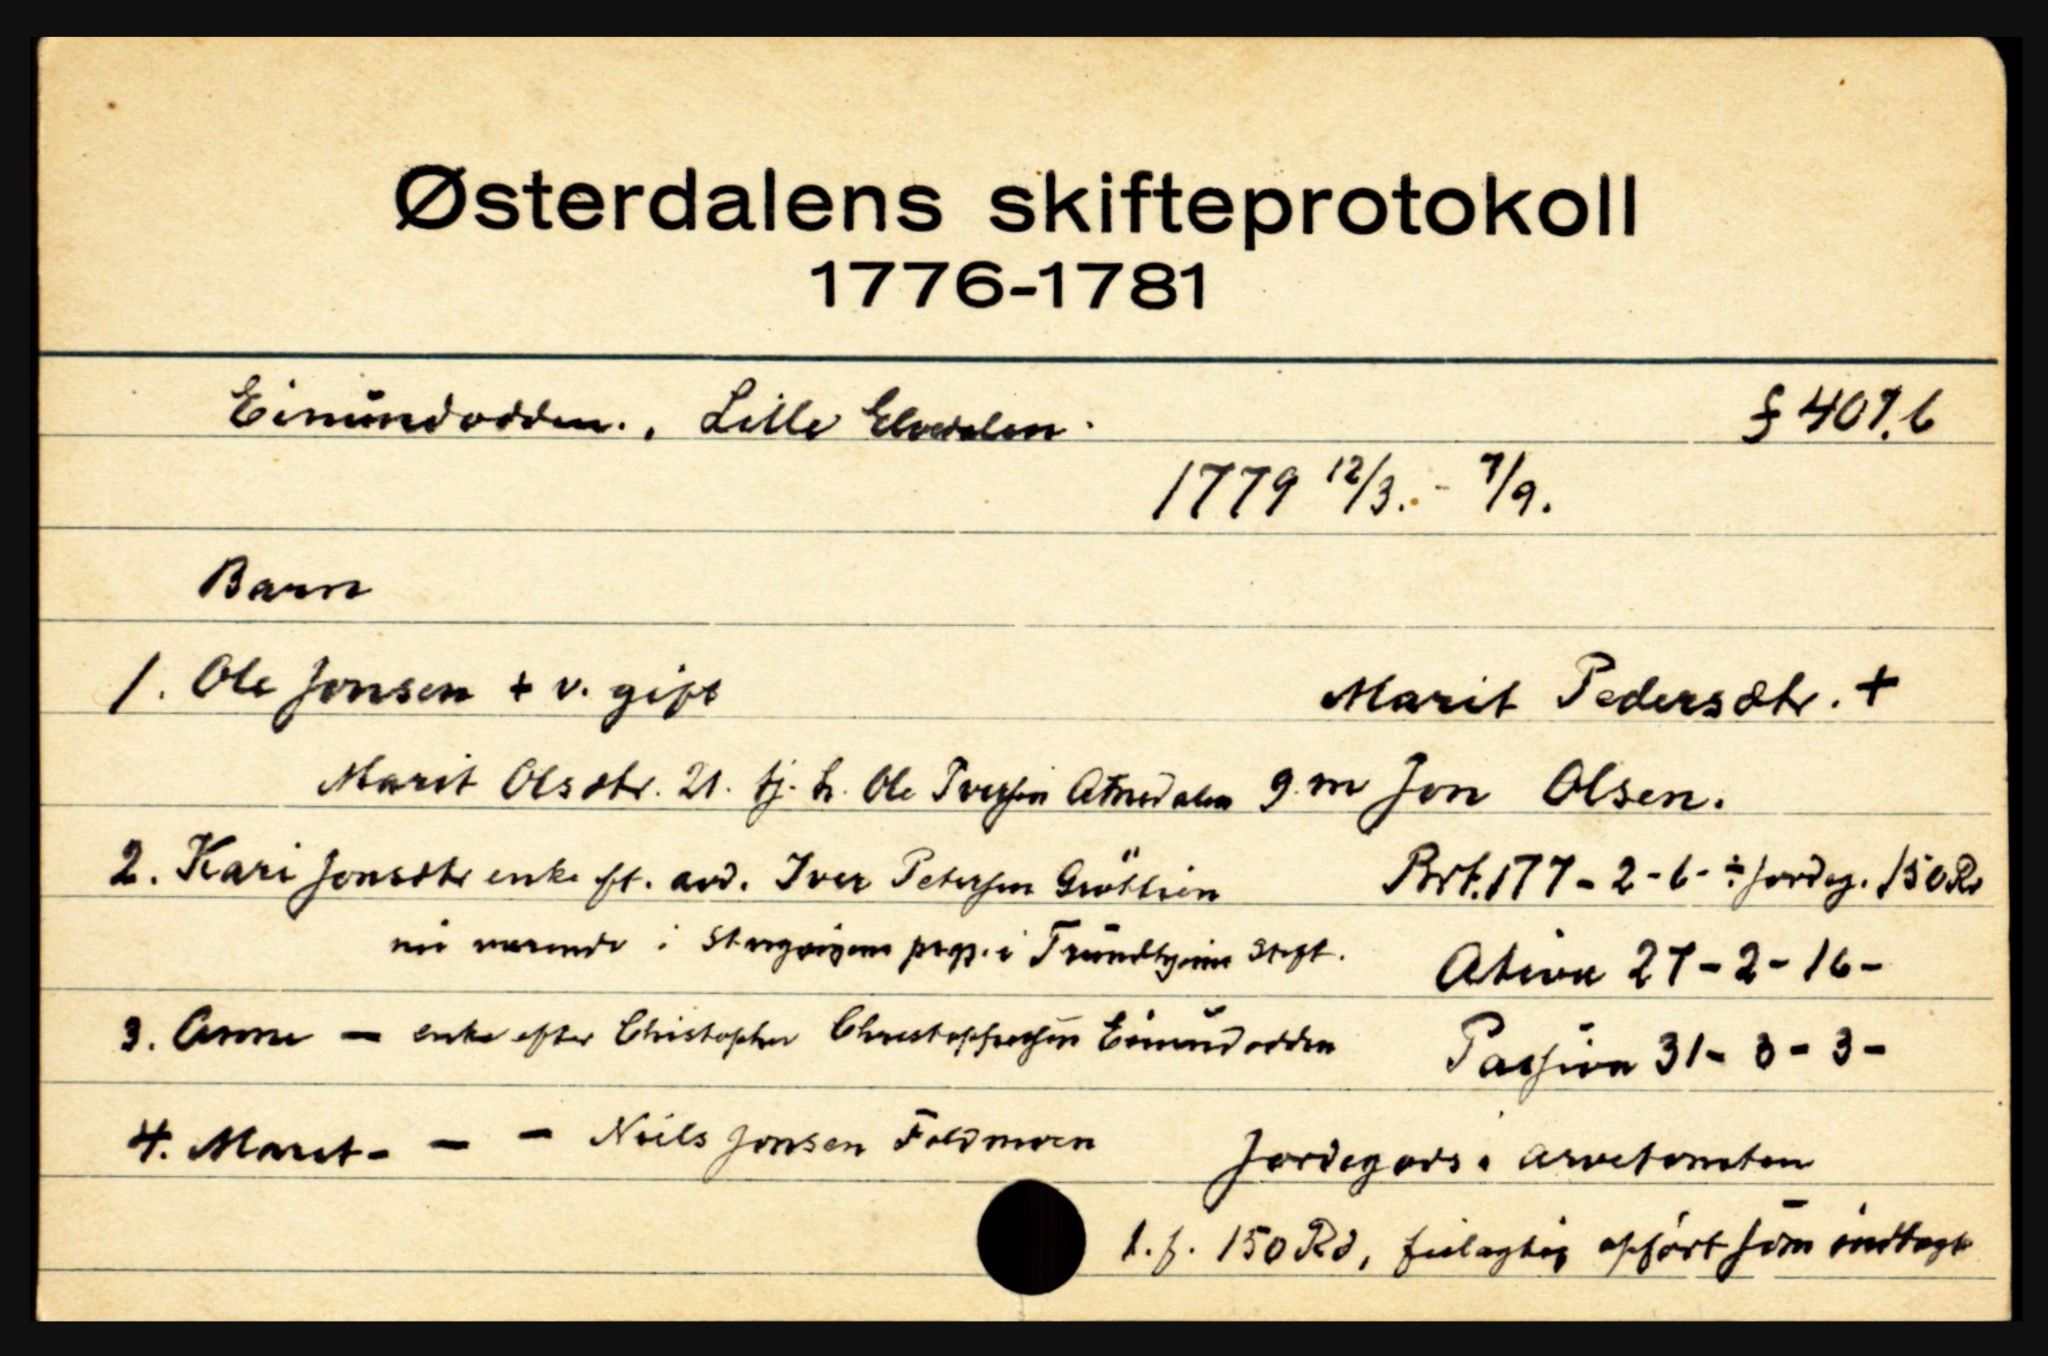 Østerdalens skifteprotokoll
1776-1781
Eimundodden., Lille Elvedalen. f 407.b
1779 12/3. - 7/9.
Barn
1. Ole Jonsen + v. gift Marit Pedersdtr. +
Marit Olsdtr. 21. tj. h. Ole Iversen Atnedalen g. m Jon Olsen.
2. Kari Jonsdtr enke ft. avd. Iver Petersen Grøtlien Brt. 177-2-6- ÷ jordeg. 150 Rd
nu værende i prgj. i Trundhjems Stift. Ativa 27-2-16-
3. Anne — enke efter Christopher Christophersen Eimundodden Passiva 31-3-3-
4. Marit - — — Niils Jonsen Foldmoen Jordegods i arvetomten
1. f. 150 Rd, feilagtig opført som indtægt